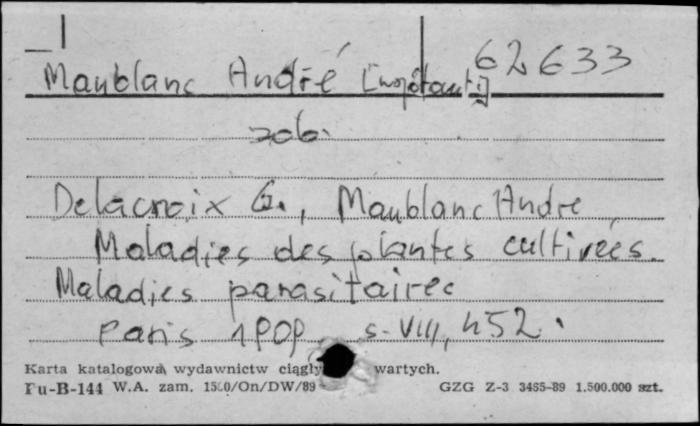 62633
Maublanc André [współaut.]
zob.
Delacroix G., Maublanc André
Maladies des plantes cultivées.
Maladies parasitaires
Paris 1909 s. VIII, 452.
Karta katalogowa wydawnictw ciągły wartych.
Pu-B-144 W.A. zam. /On/DW/89 GZG Z-3 3465-89 1.500.000 szt.